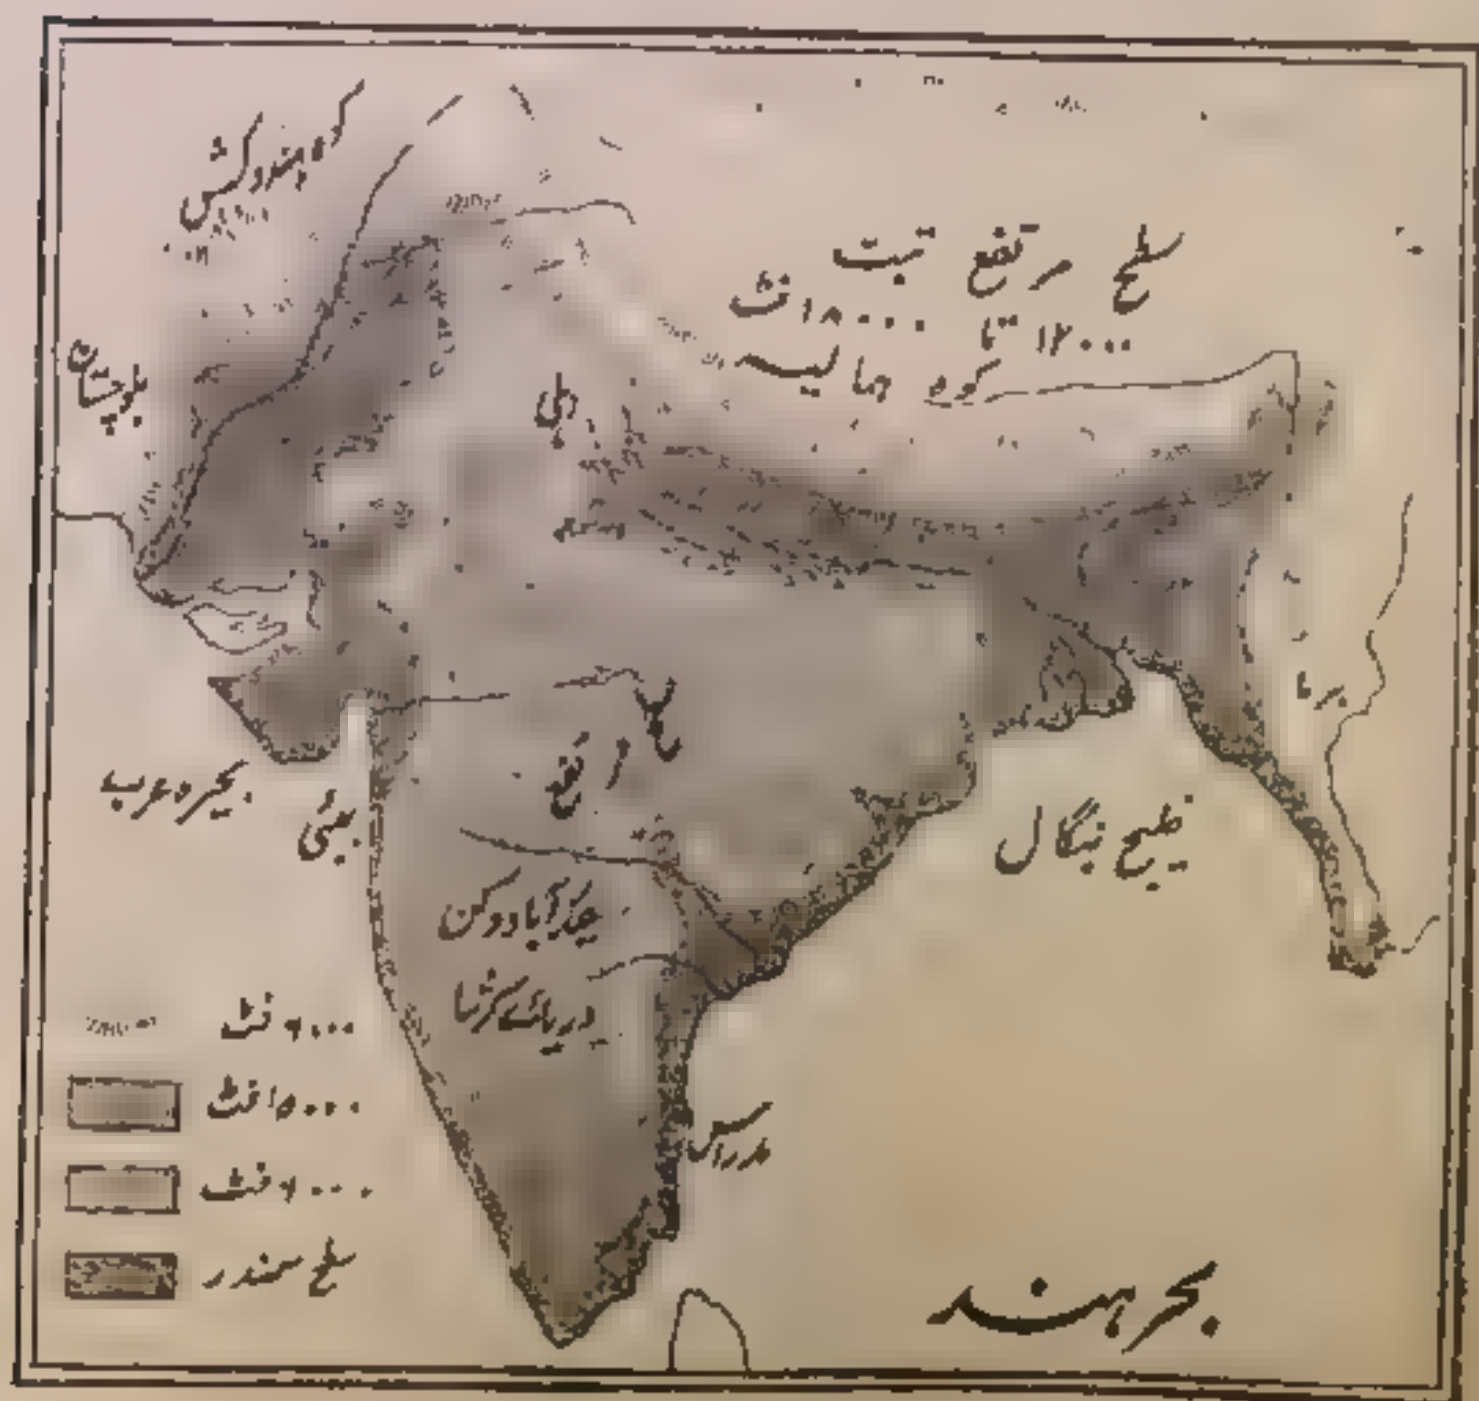 کوہ ہندوکش
سطح مرتفع تبت
۱۲۰۰۰ تا ۱۸۰۰۰ فٹ
کوہ ہمالیہ
بلوچستان
دہلی
برما
سطح
مرتفع
بحیرہ عرب
بمبئی
خلیج بنگال
حیدرآباد دکن
دریائے کرشنا
مدراس
۶۰۰۰ فٹ
۱۵۰۰۰ فٹ
۶۰۰۰ فٹ
سطح سمندر
بحر ہند